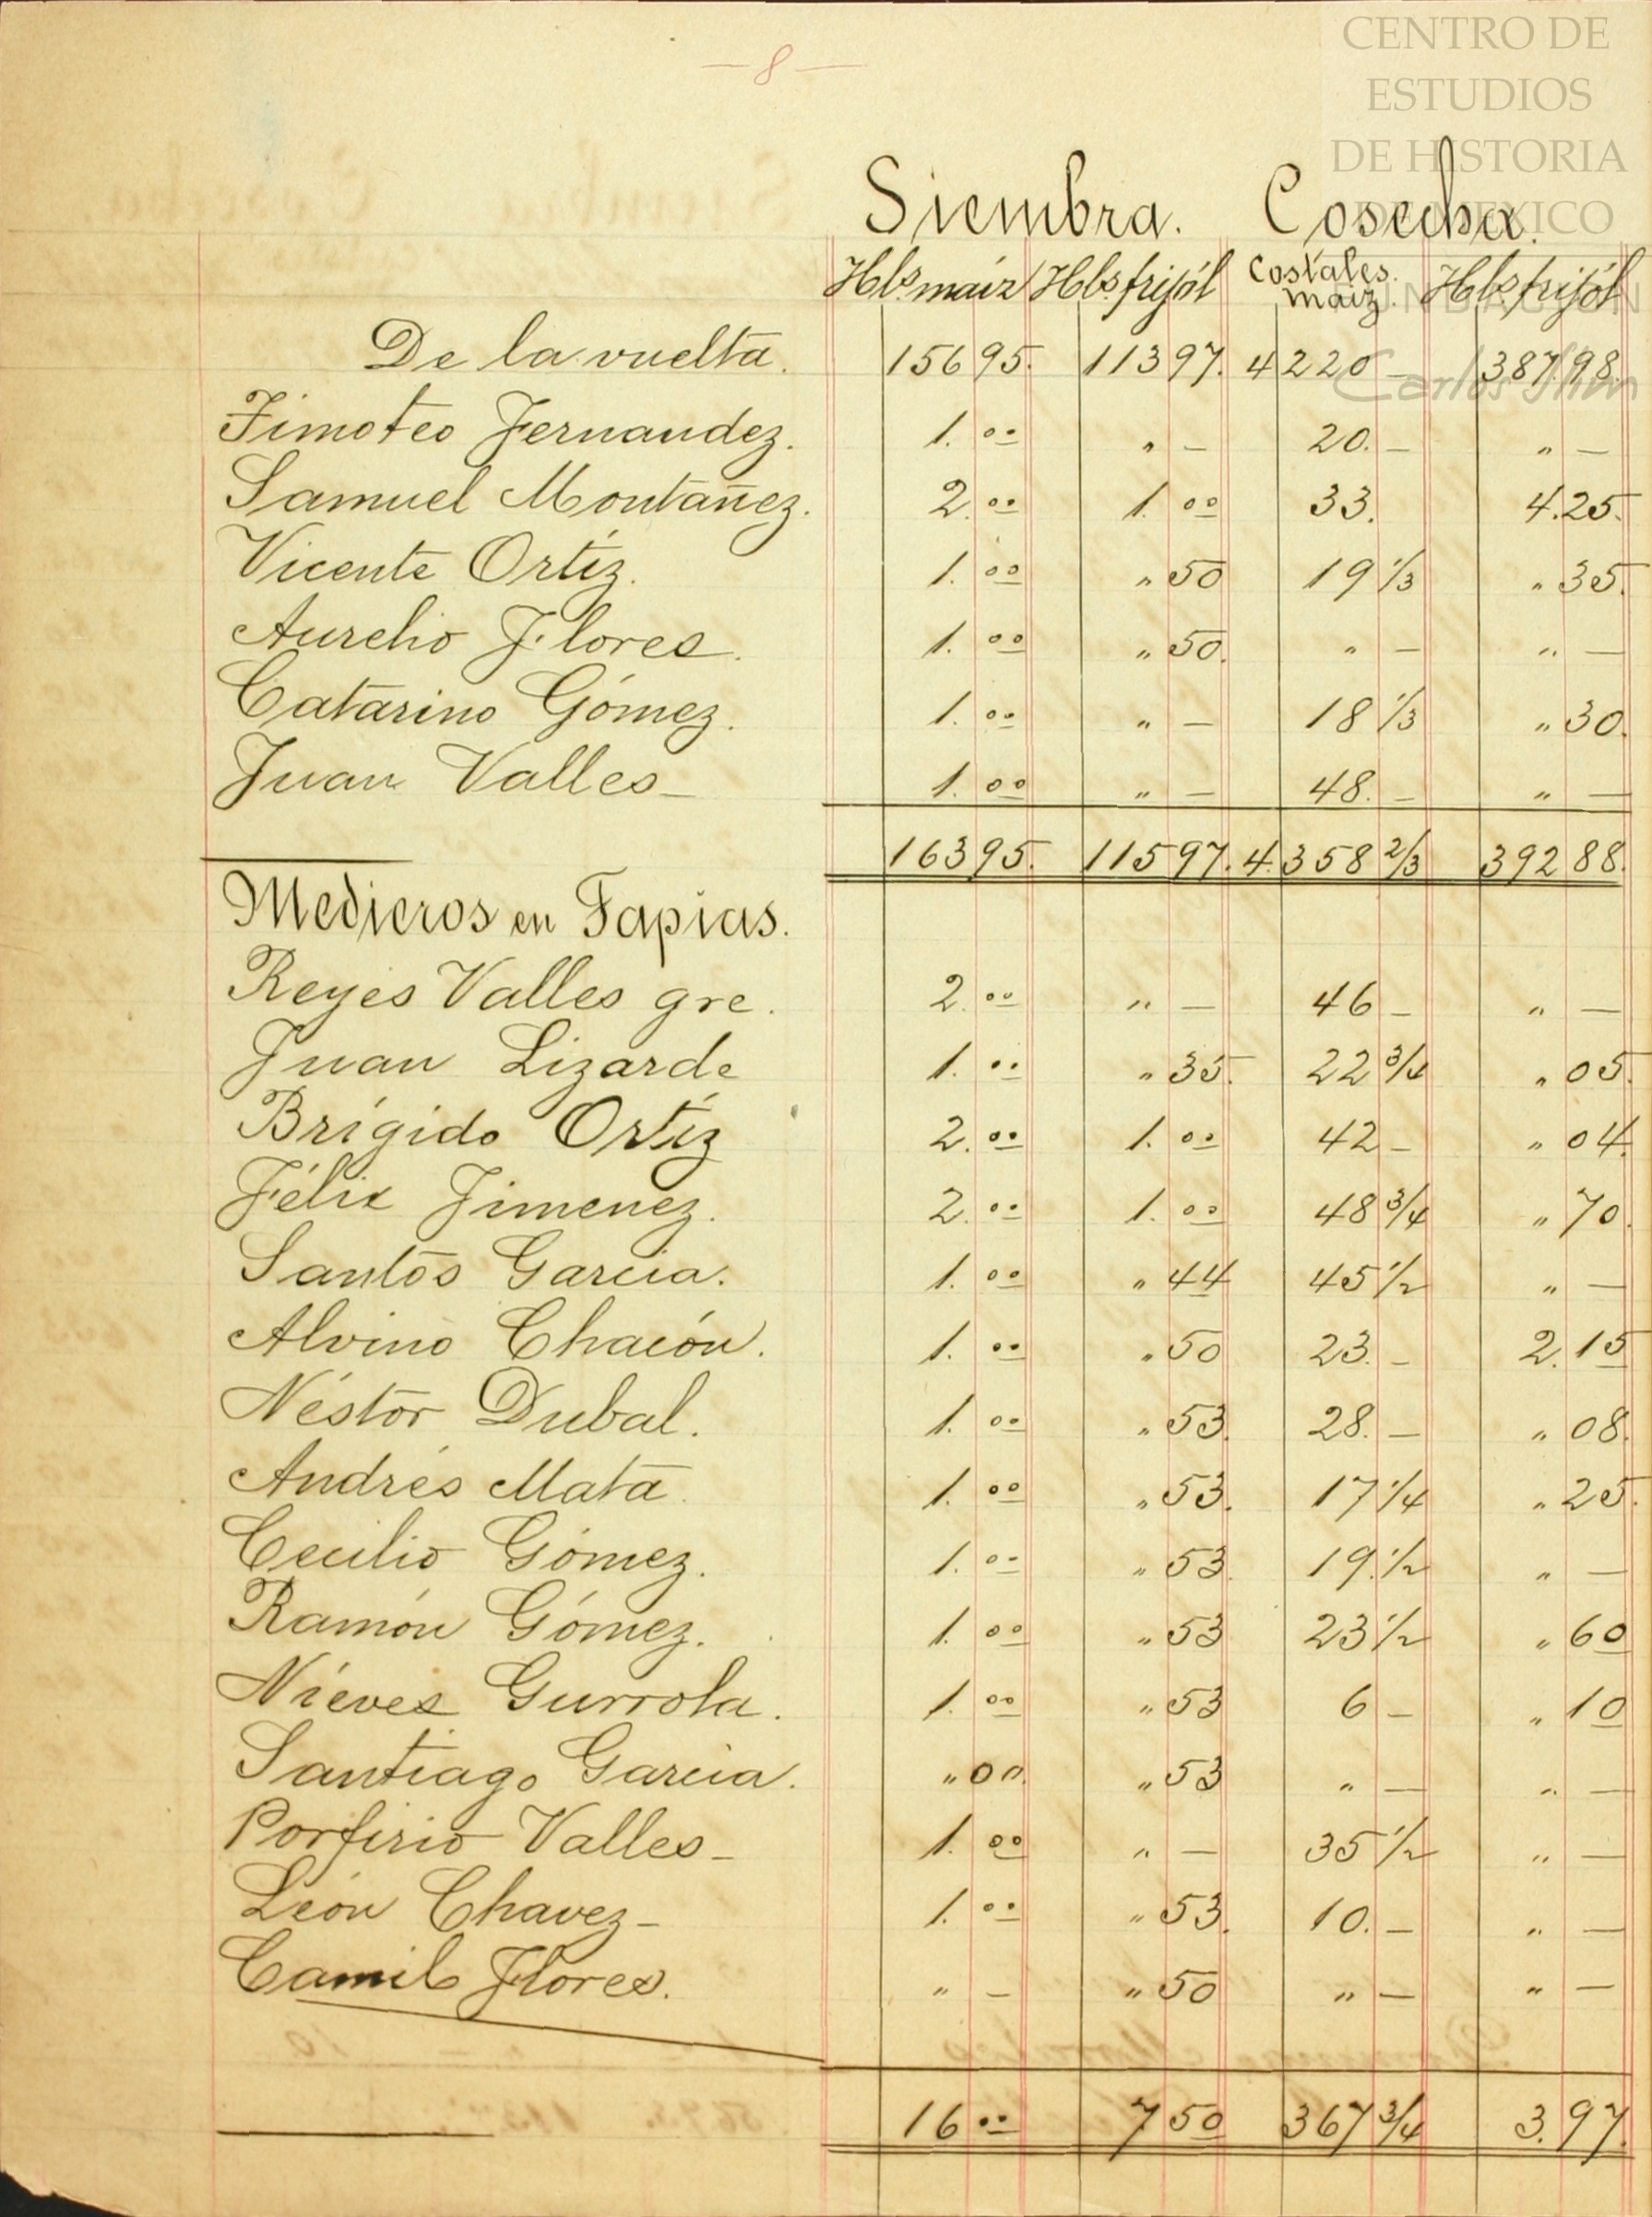 — 8 —
CENTRO DE
ESTUDIOS
DE HISTORIA
DE MEXICO
FUNDACIÓN
Carlos Slim
Siembra. Cosecha.
Hls. maíz Hls. frijól Costales. maiz. Hls. frijól
De la vuelta. 156 95. 113 97. 4 220 — 387 98.
Timoteo Fernandez. 1. 00 " — 20. — " —
Samuel Montañez. 2. 00 1. 00 33. 4. 25.
Vicente Ortíz. 1. 00 " 50 19 1/3 " 35.
Aurelio Flores. 1. 00 " 50. " — " —
Catarino Gómez. 1. 00 " — 18 1/3 " 30.
Juan Valles — 1. 00 " — 48. — " —
163 95. 115 97. 4. 358 2/3 392 88.
Medieros en Tapias.
Reyes Valles gre. 2. 00 " — 46 — " —
Juan Lizarde 1. 00 " 35. 22 3/4 " 05.
Brígido Ortíz 2. 00 1. 00 42 — " 04.
Félix Jimenez. 2. 00 1. 00 48 3/4 " 70.
Santos Garcia. 1. 00 " 44 45 1/2 " —
Alvino Chacón. 1. 00 " 50 23. — 2. 15
Néstor Dubal. 1. 00 " 53. 28. — " 08.
Andrés Mata. 1. 00 " 53. 17 1/4 " 25.
Cecilio Gómez. 1. 00 " 53. 19. 1/2 " —
Ramón Gómez. 1. 00 " 53 23 1/2 " 60
Nieves Gurrola. 1. 00 " 53 6 — " 10
Santiago Garcia. " 00. " 53 " — " —
Porfirio Valles — 1. 00 " — 35 1/2 " —
León Chavez — 1. 00 " 53. 10. — " —
Camilo Flores. " — " 50 " — " —
16 00 7 50 367 3/4 3. 97.